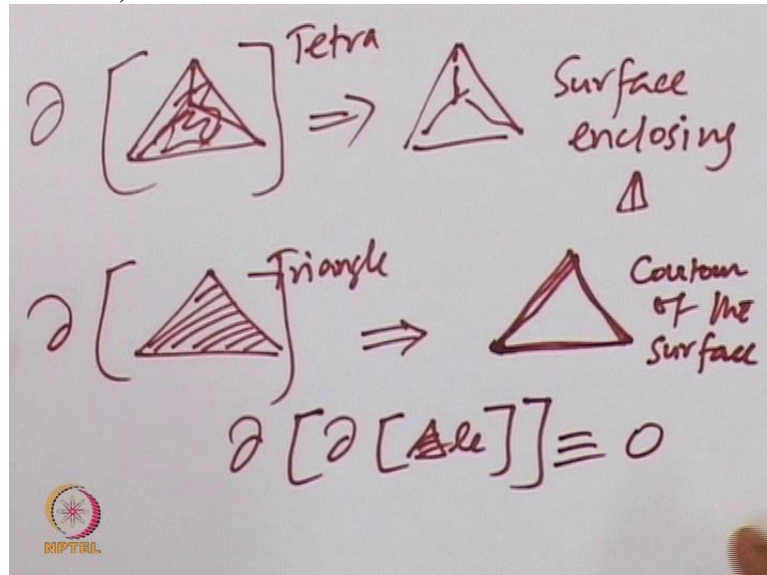 ∂ [ ] Tetra ⇒ Surface
enclosing
∂ [ ] Triangle ⇒ Contour
of the
surface
∂ [ ∂ [ le ] ] ≡ 0
NPTEL